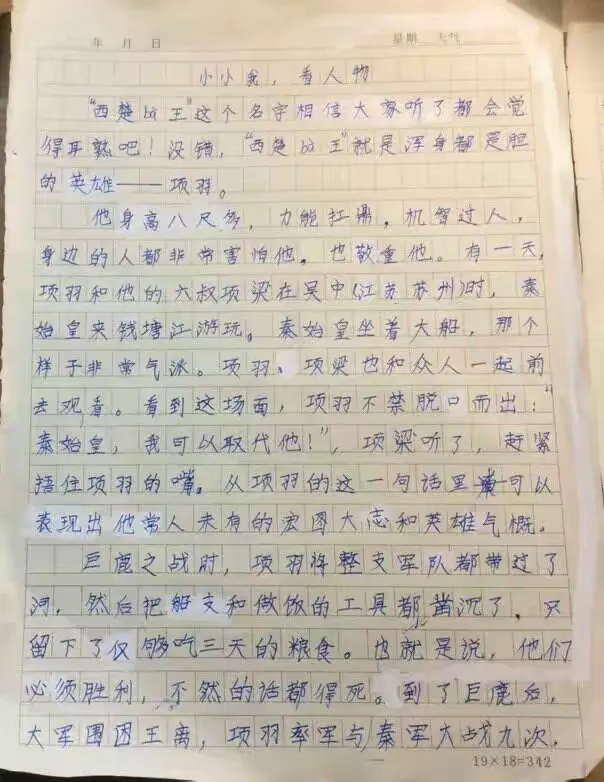 年 月 日 星期 天气
小小我，看人物
“西楚霸王”这个名字相信大家听了都会觉
得耳熟吧！没错，“西楚霸王”就是浑身都是胆
的英雄——项羽。
他身高八尺多，力能扛鼎，机智过人，
身边的人都非常害怕他。也敬重他。有一天，
项羽和他的六叔项梁在吴中(江苏苏州)时，秦
始皇来钱塘江游玩。秦始皇坐着大船，那个
样子非常气派。项羽、项梁也和众人一起前
去观看。看到这场面，项羽不禁脱口而出：“
秦始皇，我可以取代他！”，项梁听了，赶紧
捂住项羽的嘴。从项羽的这一句话里可以
表现出他常人未有的宏图大志和英雄气概。
巨鹿之战时，项羽将整支军队都带过了
河，然后把船支和做饭的工具都凿沉了，只
留下了仅够吃三天的粮食。也就是说，他们
必须胜利，不然的话都得死。到了巨鹿后，
大军围困王离，项羽率军与秦军大战九次，
19×18=342